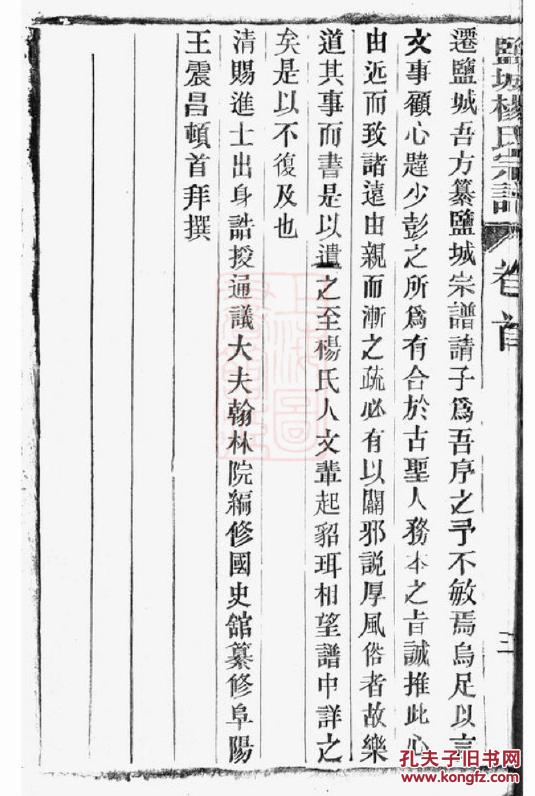 鹽城楊氏宗譜 卷首 三
遷鹽城吾方纂鹽城宗譜請子爲吾序之予不敏焉烏足以言
文事顧心韙少彭之所爲有合於古聖人務本之旨誠推此心
由近而致諸遠由親而漸之疏必有以闢邪説厚風俗者故樂
道其事而書是以遺之至楊氏人文輩起貂珥相望譜中詳之
矣是以不復及也
清賜進士出身誥授通議大夫翰林院編修國史舘纂修阜陽
王震昌頓首拜撰
孔夫子旧书网
www.kongfz.com